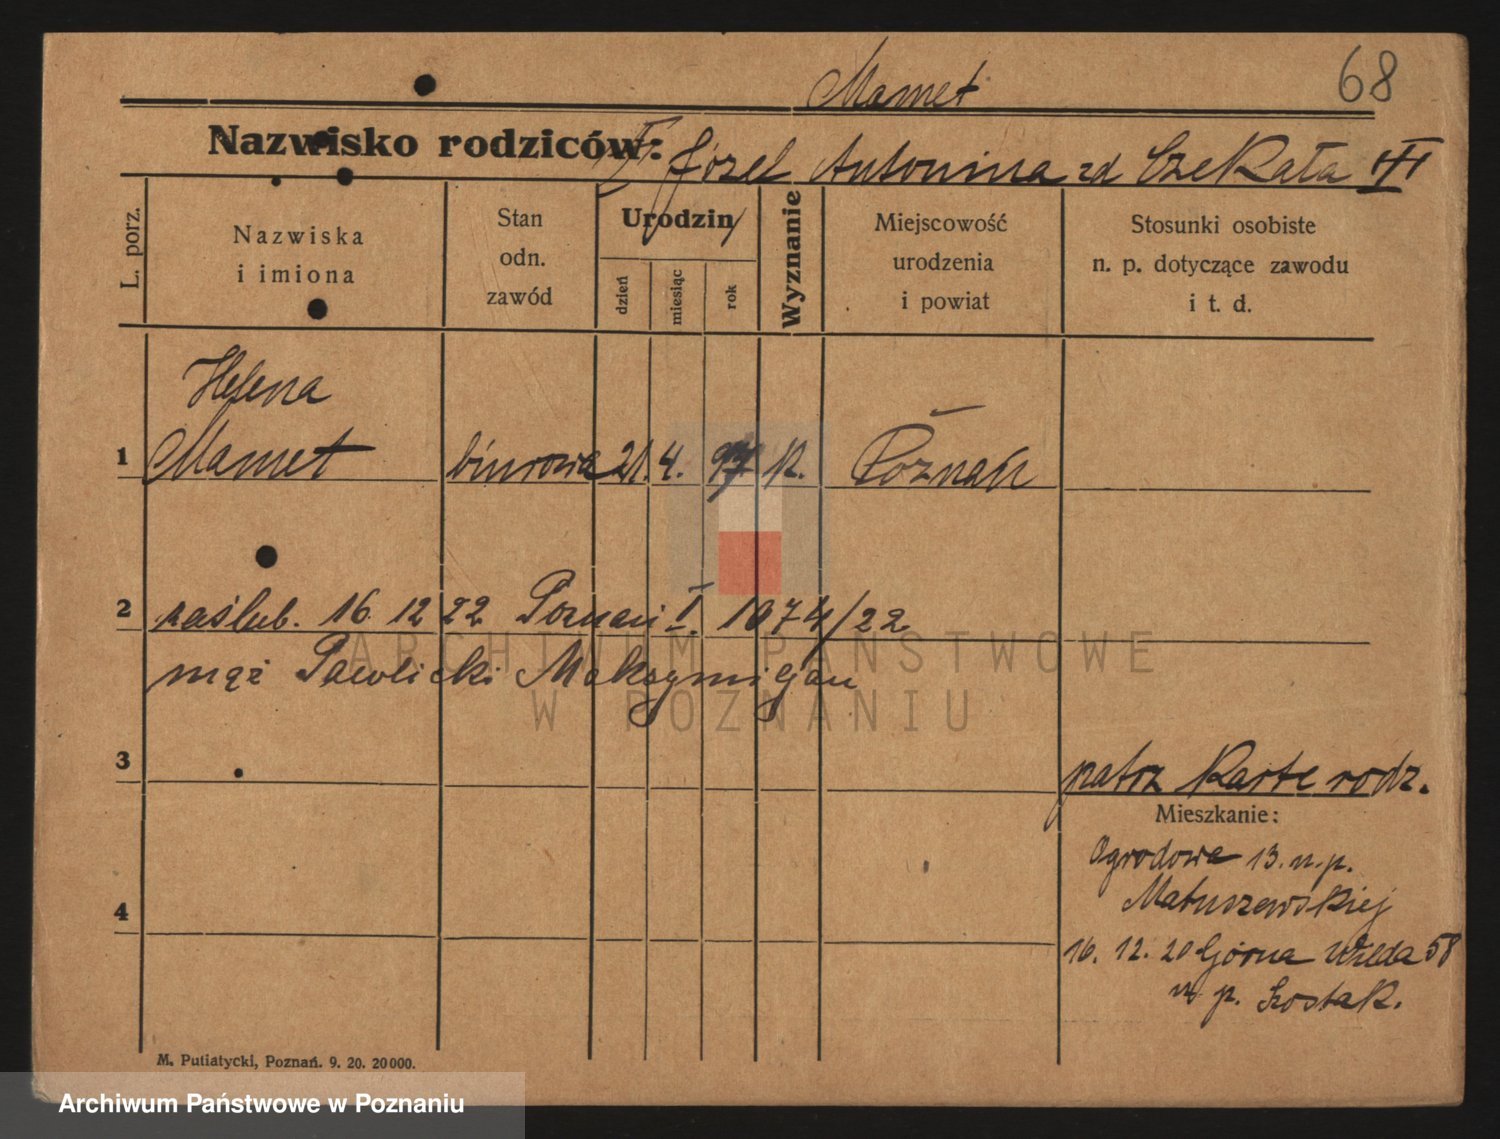 Mamet
68
Nazwisko rodziców: Józef Antonina zd Czekała III
L. porz.
Nazwiska
i imiona
Stan
odn.
zawód
Urodzin
dzień
miesiąc
rok
Wyznanie
Miejscowość
urodzenia
i powiat
Stosunki osobiste
n. p. dotyczące zawodu
i t. d.
Helena
1 Mamet biurowa 21. 4. 97 K. Poznań
2 zaślub. 16 12 22 Poznań I. 1074/22
mąż Pawlicki Maksymiljan
3
patrz Kartę rodz.
Mieszkanie:
Ogrodowa 13. u. p.
Matuszewskiej
4
16. 12. 20 Górna Wilda 58
u. p. Szostak.
M. Putiatycki, Poznań. 9. 20. 20000.
ARCHIWUM PAŃSTWOWE
W POZNANIU
Archiwum Państwowe w Poznaniu